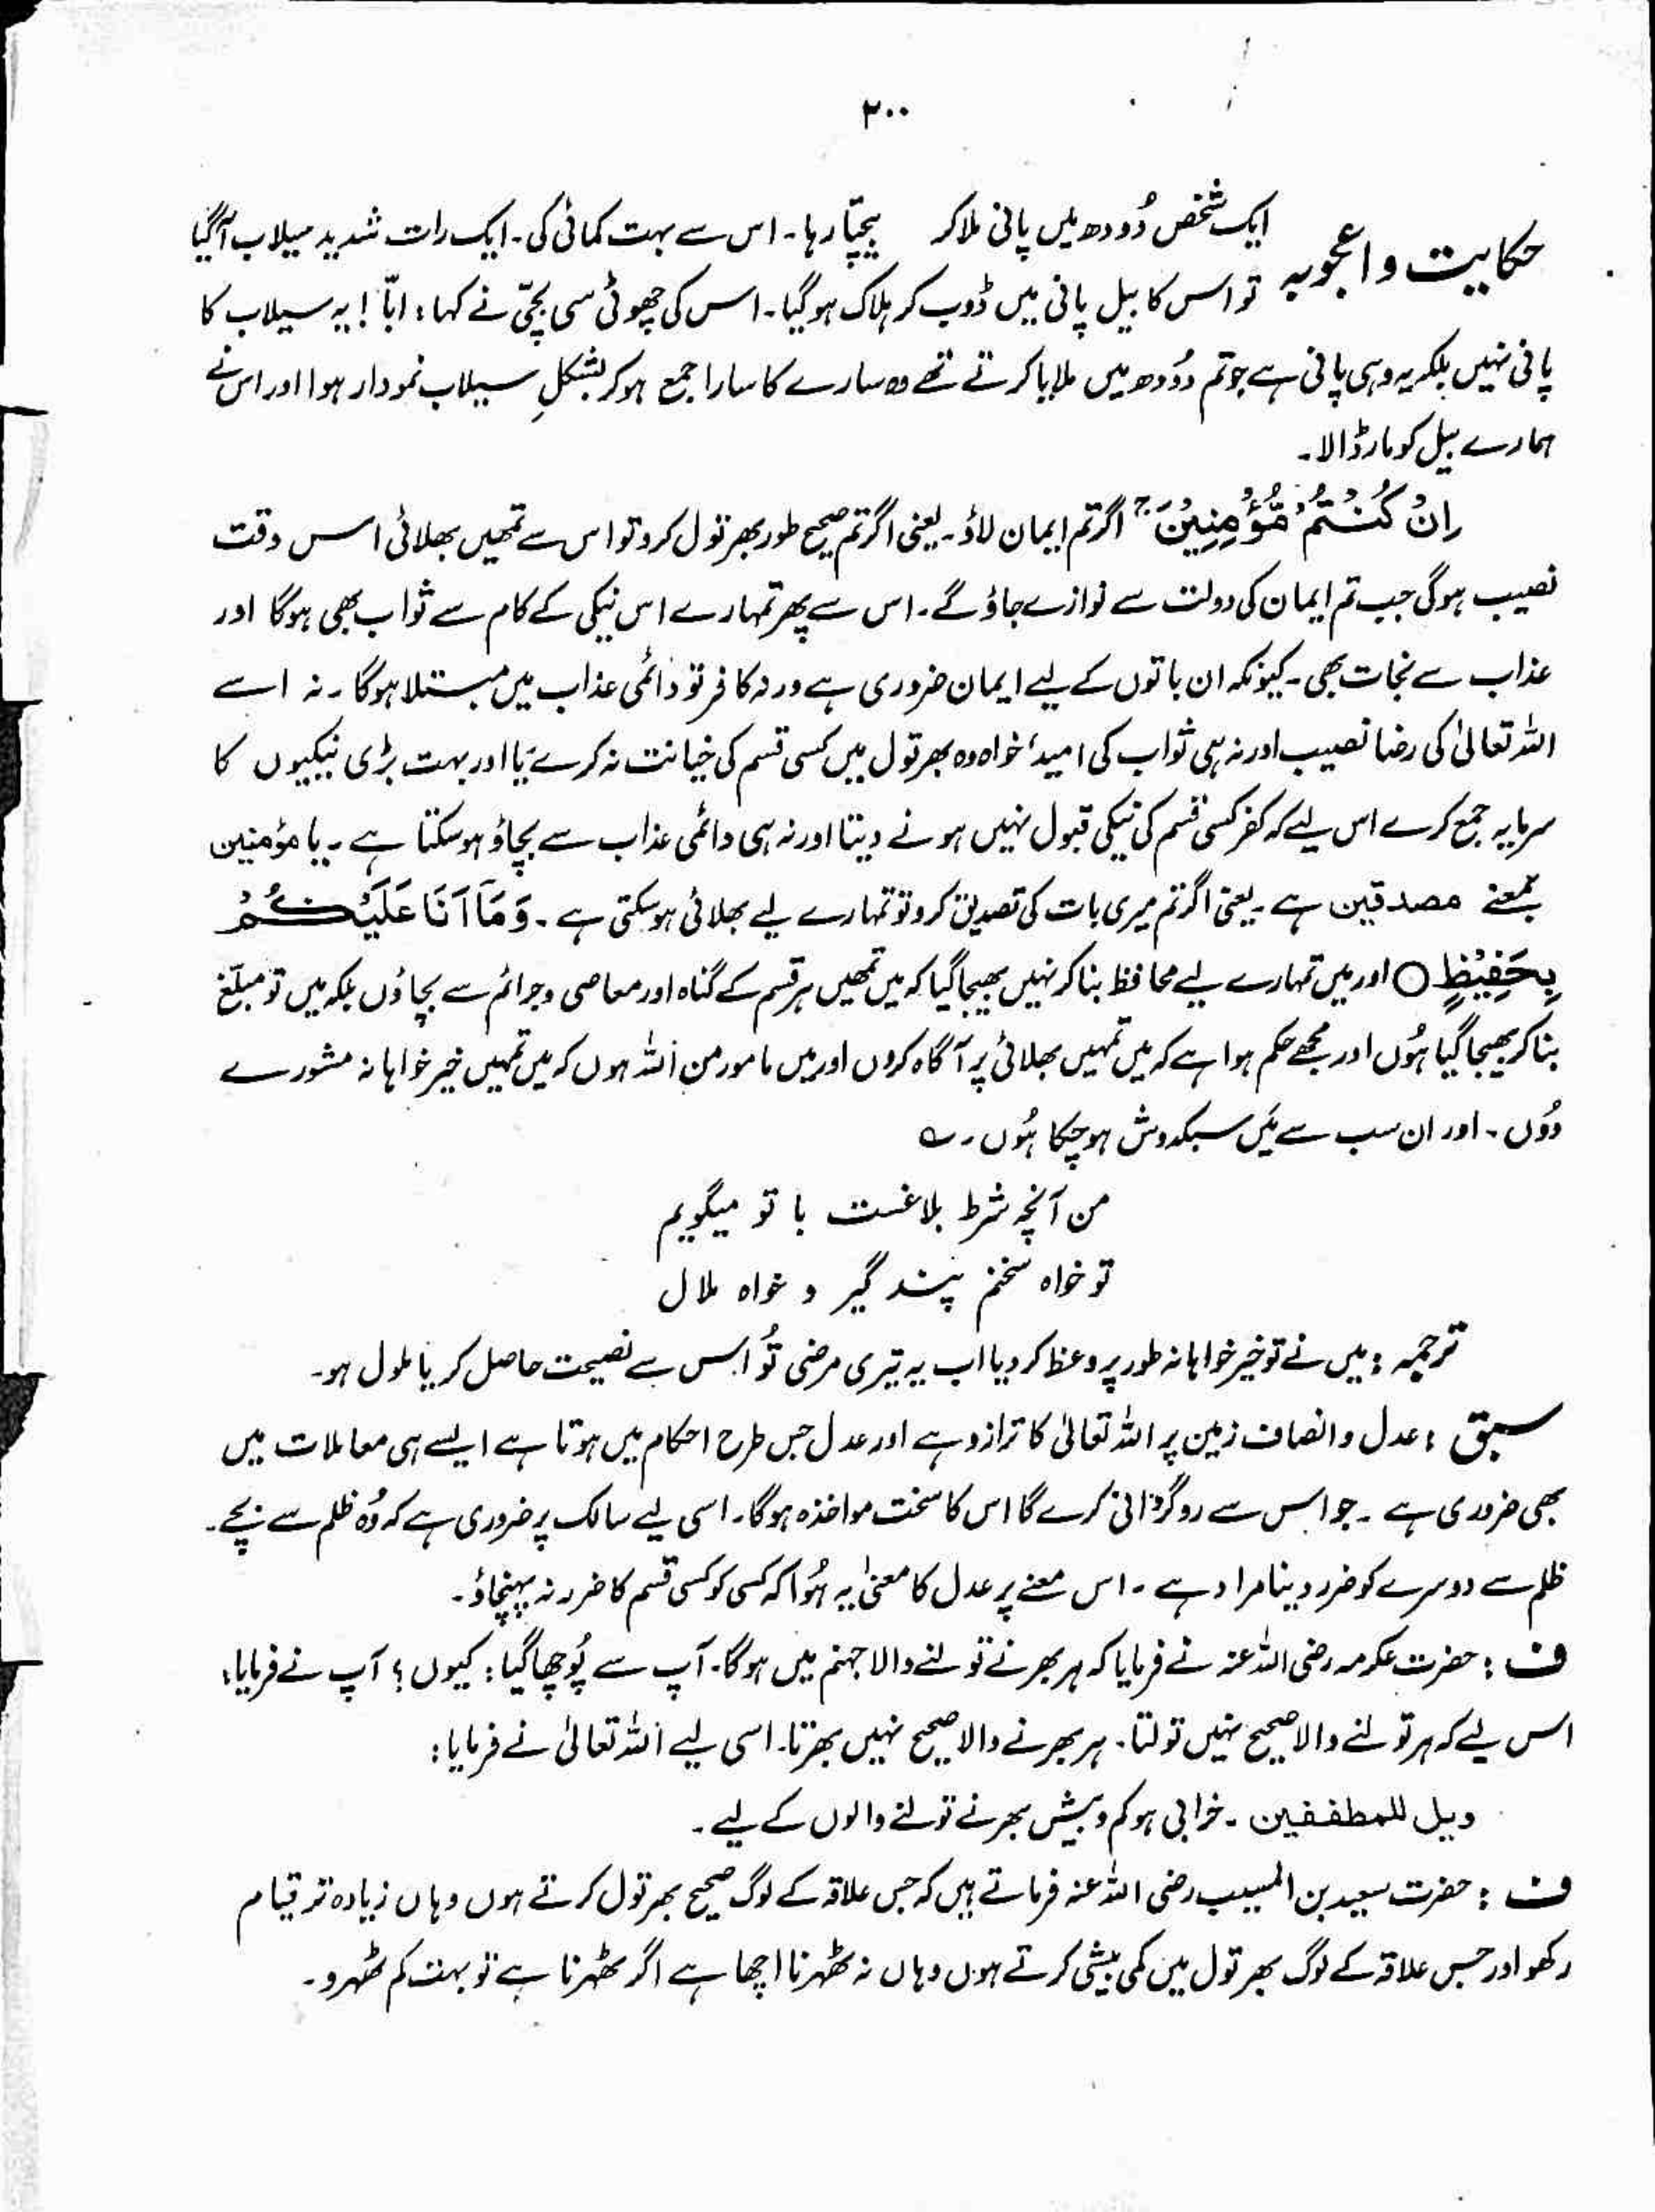 ۲۰۰
حکایت و اعجوبہ ایک شخص دُودھ میں پانی ملا کر بیچتا رہا۔ اس سے بہت کمائی کی۔ ایک رات شدید سیلاب آگیا
تو اس کا بیل پانی میں ڈوب کر ہلاک ہوگیا۔ اس کی چھوٹی سی بچّی نے کہا: ابّا! یہ سیلاب کا
پانی نہیں بلکہ یہ وہی پانی ہے جو تم دُودھ میں ملایا کرتے تھے وہ سارے کا سارا جمع ہو کر بشکلِ سیلاب نمودار ہوا اور اس نے
ہمارے بیل کو مار ڈالا۔
اِنْ كُنْتُمْ مُّؤْمِنِيْنَ ۚ اگر تم ایمان لاؤ۔ یعنی اگر تم صحیح طور بھر تول کرو تو اس سے تمھیں بھلائی اس وقت
نصیب ہوگی جب تم ایمان کی دولت سے نوازے جاؤ گے۔ اس سے پھر تمہارے اس نیکی کے کام سے ثواب بھی ہوگا اور
عذاب سے نجات بھی۔ کیونکہ ان باتوں کے لیے ایمان ضروری ہے ورنہ کافر تو دائمی عذاب میں مبتلا ہوگا۔ نہ اسے
اللہ تعالیٰ کی رضا نصیب اور نہ ہی ثواب کی امید، خواہ وہ بھر تول میں کسی قسم کی خیانت نہ کرے یا اور بہت بڑی نیکیوں کا
سرمایہ جمع کرے اس لیے کہ کفر کسی قسم کی نیکی قبول نہیں ہونے دیتا اور نہ ہی دائمی عذاب سے بچاؤ ہوسکتا ہے۔ یا مؤمنین
بمعنے مصدقین ہے۔ یعنی اگر تم میری بات کی تصدیق کرو تو تمہارے لیے بھلائی ہوسکتی ہے۔ وَمَآ اَنَا عَلَيْكُمْ
بِحَفِيْظٍ ○ اور میں تمہارے لیے محافظ بنا کر نہیں بھیجا گیا کہ میں تمھیں ہر قسم کے گناہ اور معاصی و جرائم سے بچاؤں بلکہ میں تو مبلّغ
بنا کر بھیجا گیا ہُوں اور مجھے حکم ہوا ہے کہ میں تمہیں بھلائی پر آگاہ کروں اور میں مامور من اللہ ہوں کہ میں تمہیں خیر خواہانہ مشورے
دُوں۔ اور ان سب سے مَیں سبکدوش ہوچکا ہُوں۔ ؎
من آنچہ شرط بلاغست با تو میگویم
تو خواہ سخنم پند گیر و خواہ ملال
ترجمہ: میں نے تو خیر خواہانہ طور پر وعظ کر دیا اب یہ تیری مرضی تُو اس سے نصیحت حاصل کر یا ملول ہو۔
سبق: عدل و انصاف زمین پر اللہ تعالیٰ کا ترازو ہے اور عدل جس طرح احکام میں ہوتا ہے ایسے ہی معاملات میں
بھی ضروری ہے۔ جو اس سے روگردانی کرے گا اس کا سخت مواخذہ ہوگا۔ اسی لیے سالک پر ضروری ہے کہ وُہ ظلم سے بچے۔
ظلم سے دوسرے کو ضرر دینا مراد ہے۔ اس معنے پر عدل کا معنیٰ یہ ہُوا کہ کسی کو کسی قسم کا ضرر نہ پہنچاؤ۔
ف: حضرت عکرمہ رضی اللہ عنہ نے فرمایا کہ ہر بھرنے تولنے والا جہنم میں ہوگا۔ آپ سے پُوچھا گیا: کیوں؟ آپ نے فرمایا:
اس لیے کہ ہر تولنے والا صحیح نہیں تولتا۔ ہر بھرنے والا صحیح نہیں بھرتا۔ اسی لیے اللہ تعالیٰ نے فرمایا:
ویل للمطففین۔ خرابی ہو کم و بیش بھرنے تولنے والوں کے لیے۔
ف: حضرت سعید بن المسیب رضی اللہ عنہ فرماتے ہیں کہ جس علاقہ کے لوگ صحیح بھر تول کرتے ہوں وہاں زیادہ تر قیام
رکھو اور جس علاقہ کے لوگ بھر تول میں کمی بیشی کرتے ہوں وہاں نہ ٹھہرنا اچھا ہے اگر ٹھہرنا ہے تو بہت کم ٹھہرو۔